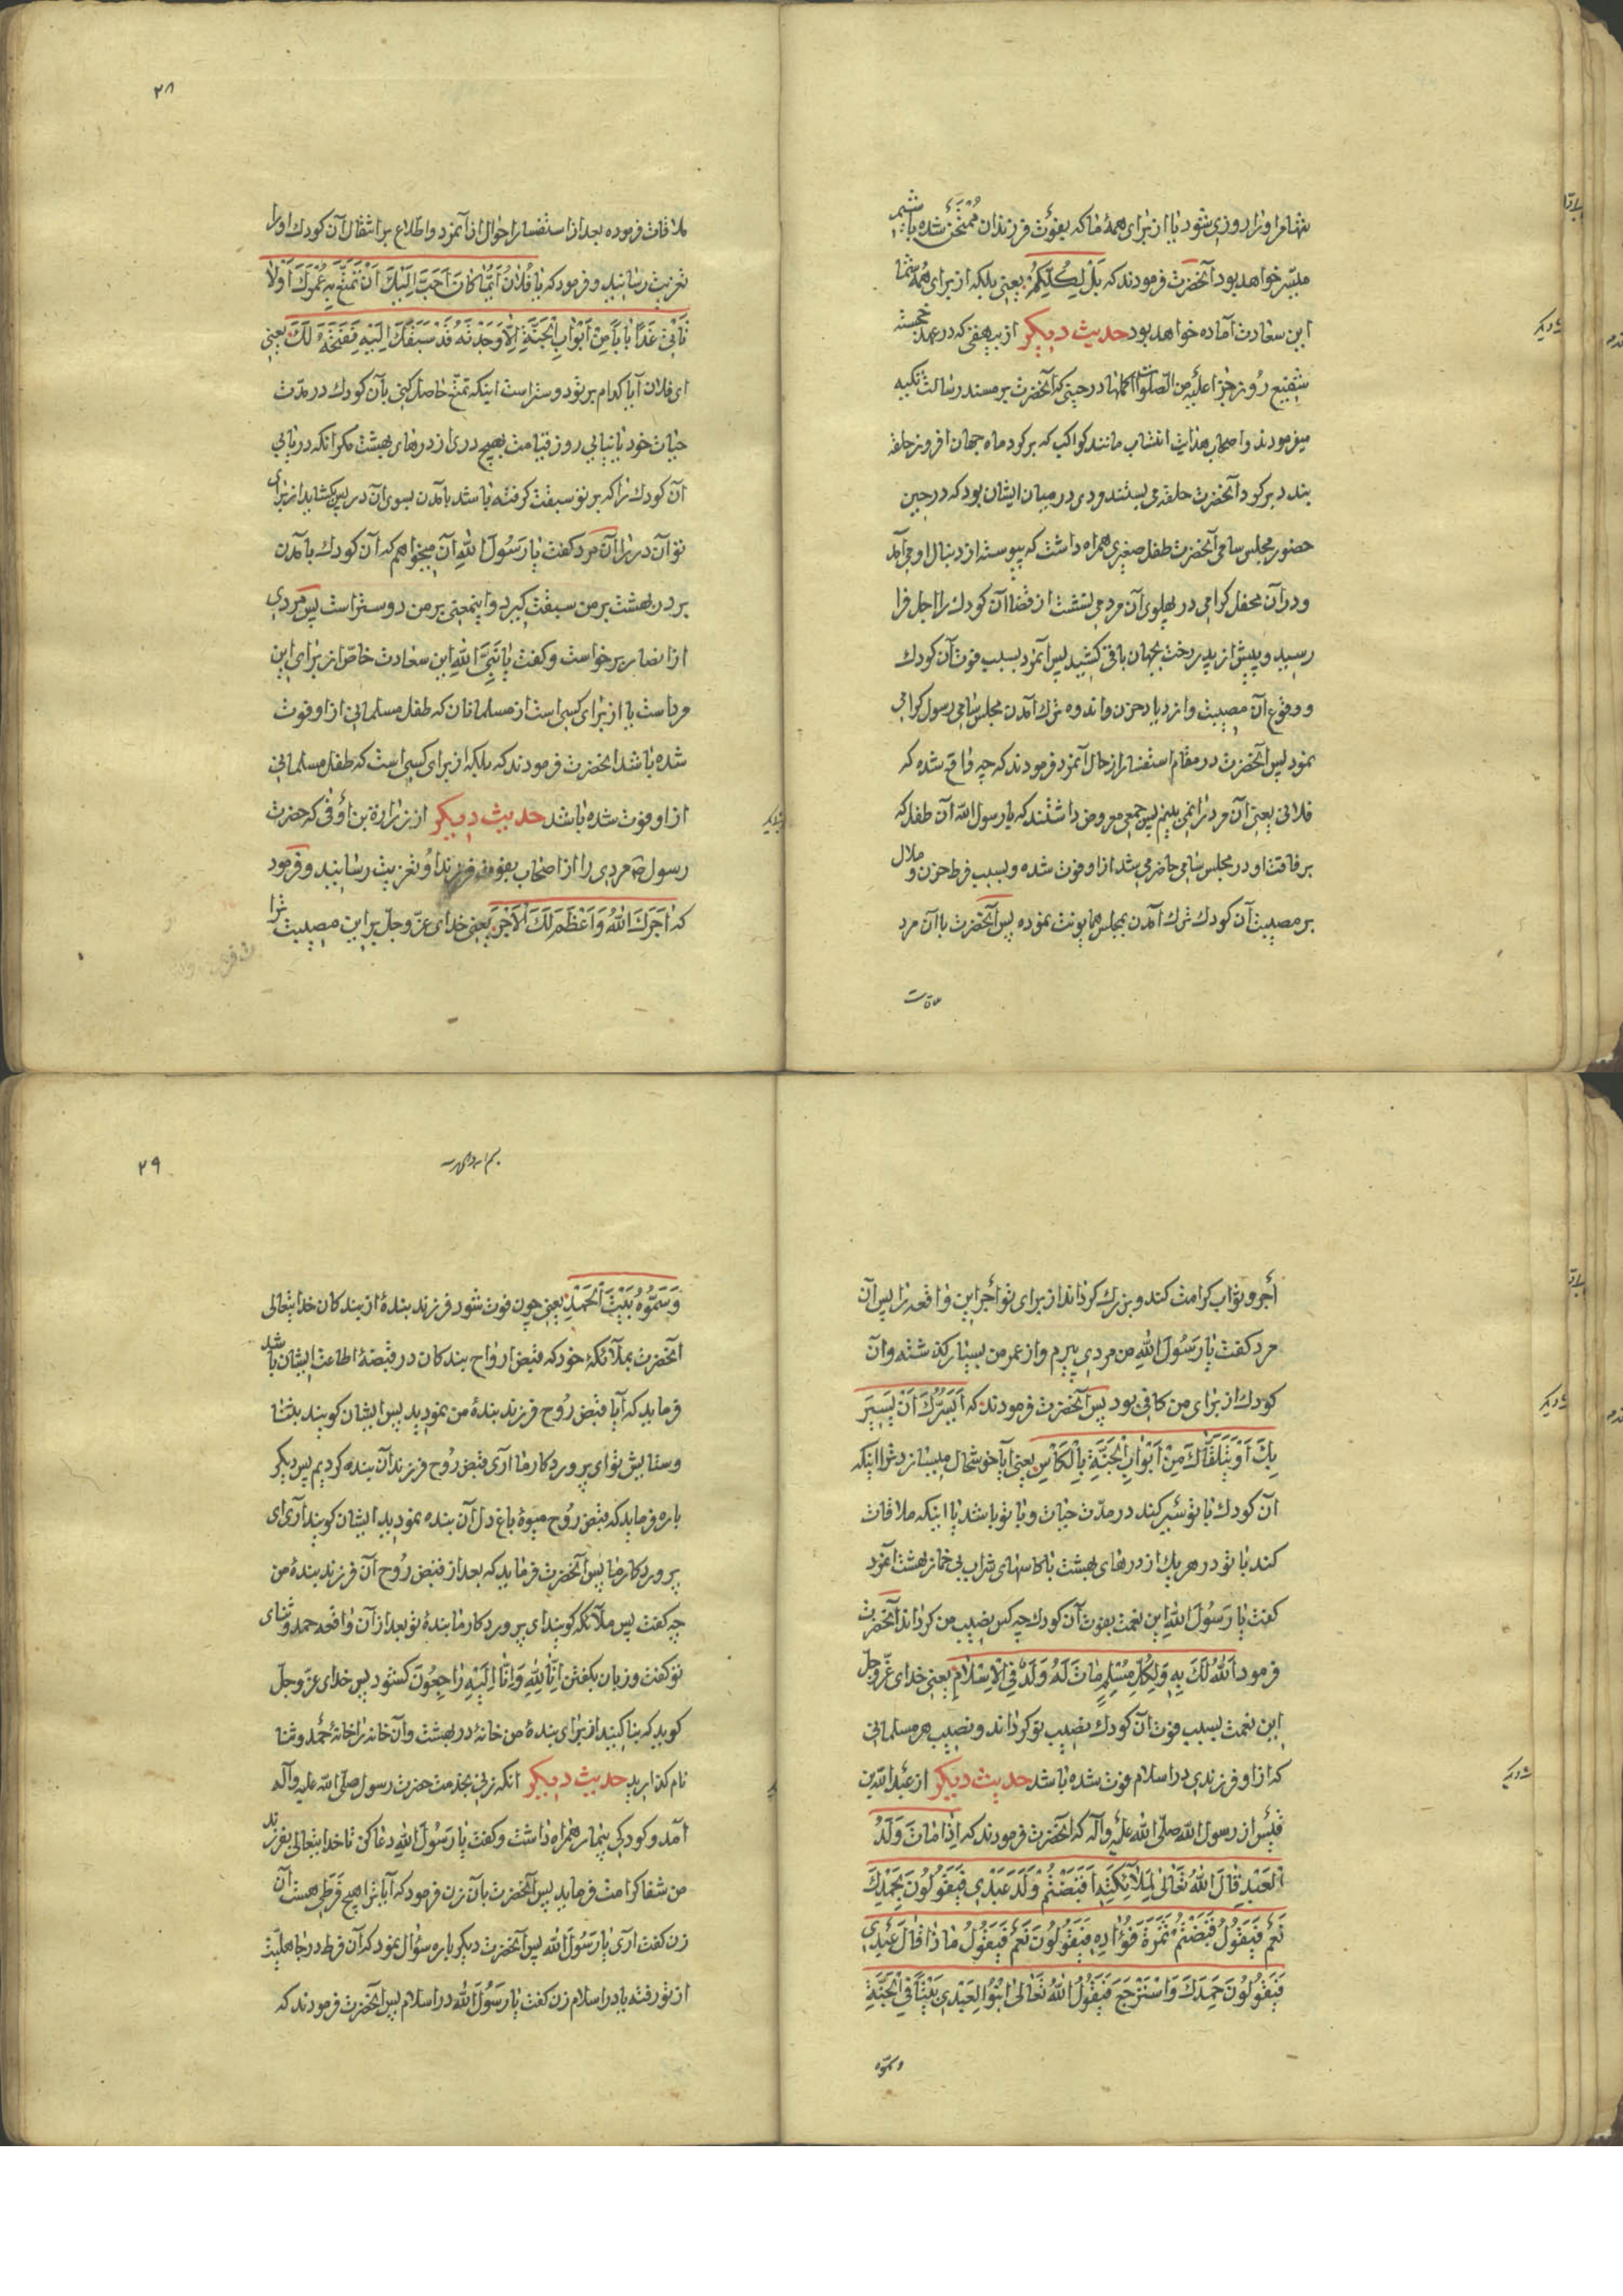 تنها مر او را روزی شود یا از برای همهٔ ما که بفوت فرزندان ممتحن شده باشیم
میسّر خواهد بود آنحضرت فرمودند که بَلْ لِکُلِّکُمْ یعنی بلکه از برای همهٔ شما
این سعادت آماده خواهد بود حدیث دیگر از بیهقی که در عهد خجسته
شفیع روز جزا علیه من الصلوات اکملها در حینی که آنحضرت بر مسند رسالت تکیه
میفرمودند و اصحاب هدایت انتساب مانند کواکب که بر گرد ماه جهان افروز حلقه
بندد بر گرد آنحضرت حلقه می بستند ودی در میان ایشان بود که در حین
حضور مجلس سامی آنحضرت طفل صغیری همراه داشت که پیوسته از دنبال او می آمد
و در آن محفل گرامی در پهلوی آن مرد می نشست از قضا آن کودک را اجل فرا
رسید و پیش از پدر رخت بجهان باقی کشید پس آنمرد بسبب فوت آن کودک
و وقوع آن مصیبت و ازدیاد حزن و اندوه ترک آمدن مجلس سامی رسول گرامی
نمود پس آنحضرت در مقام استفسار از حال آنمرد فرمودند که چه واقع شده که
فلانی یعنی آن مرد را نمی بینم پس جمعی معروض داشتند که یا رسول الله آن طفل که
برفاقت او در مجلس سامی حاضر می شد از او فوت شده و بسبب فرط حزن و ملال
بر مصیبت آن کودک ترک آمدن بمجلس همایونت نموده پس آنحضرت با آن مرد
ملاقات
۲۸
ملاقات فرموده بعد از استفسار احوال از آنمرد و اطلاع بر انتقال آن کودک او را
تعزیت رسانید و فرمود که یَا فُلَانُ اَیُّمَا کَانَ اَحَبَّ اِلَیْکَ اَنْ تَمَتَّعَ بِهِ عُمُرَکَ اَوْ لَا
تَأْتِیَ غَدًا بَابًا مِنْ اَبْوَابِ الْجَنَّةِ اِلَّا وَجَدْتَهُ قَدْ سَبَقَکَ اِلَیْهِ فَیَفْتَحُهُ لَکَ یعنی
ای فلان آیا کدام بر تو دوستر است اینکه تمتّع حاصل کنی بآن کودک در مدّت
حیات خود یا نیایی روز قیامت بهیچ دری از درهای بهشت مگر آنکه دریابی
آن کودک را که بر تو سبقت گرفته باشد بآمدن بسوی آن در پس بگشاید از برای
تو آن در را آن مرد گفت یا رَسُولَ اللهِ آن میخواهم که آن کودک بآمدن
بر در بهشت بر من سبقت گیرد و اینمعنی بر من دوستر است پس مردی
از انصار برخواست و گفت یا نَبِیَّ اللهِ این سعادت خاصّ از برای این
مرد است یا از برای کسی است از مسلمانان که طفل مسلمانی از او فوت
شده باشد آنحضرت فرمودند که بلکه از برای کسی است که طفل مسلمانی
از او فوت شده باشد حدیث دیگر از زرارة بن أوفی که حضرت
رسول ص مردی را از اصحاب بفوت فرزند او تعزیت رسانیدند و فرمود
که اٰجَرَکَ اللهُ وَاَعْظَمَ لَکَ الْاَجْرَ یعنی خدای عزّ وجلّ بر این مصیبت ترا
أجر و ثواب کرامت کند و بزرگ گرداند از برای تو أجر این واقعه را پس آن
مرد گفت یا رَسُولَ اللهِ من مردی پیرم و از عمر من بسیار گذشته و آن
کودک از برای من کافی بود پس آنحضرت فرمودند که اَیَسُرُّکَ اَنْ یَسِیرَ
بِکَ اَوْ یَتَلَقَّاکَ مِنْ اَبْوَابِ الْجَنَّةِ بِالْکَأْسِ یعنی آیا خوشحال میسازد ترا اینکه
آن کودک با تو سَیر کند در مدّت حیات و با تو باشد یا اینکه ملاقات
کند با تو در هر یک از درهای بهشت با کاسهای شراب بی خمار بهشت آنمرد
گفت یا رَسُولَ اللهِ این نعمت بفوت آن کودک چه کس نصیب من گرداند آنحضرت
فرمود اَللهُ لَکَ بِهِ وَلِکُلِّ مُسْلِمٍ مَاتَ لَهُ وَلَدٌ فِی الْاِسْلَامِ یعنی خدای عزّ وجلّ
این نعمت بسبب فوت آن کودک نصیب تو گرداند و نصیب هر مسلمانی
که از او فرزندی در اسلام فوت شده باشد حدیث دیگر از عبد الله بن
قیس از رسول الله صلّی الله علیه وآله که آنحضرت فرمودند که اِذَا مَاتَ وَلَدُ
الْعَبْدِ قَالَ اللهُ تَعَالٰی لِمَلَائِکَتِهِ اَقَبَضْتُمْ وَلَدَ عَبْدِی فَیَقُولُونَ بِحَمْدِکَ
نَعَمْ فَیَقُولُ قَبَضْتُمْ ثَمَرَةَ فُؤَادِهِ فَیَقُولُونَ نَعَمْ فَیَقُولُ مَاذَا قَالَ عَبْدِی
فَیَقُولُونَ حَمِدَکَ وَاسْتَرْجَعَ فَیَقُولُ اللهُ تَعَالٰی ابْنُوا لِعَبْدِی بَیْتًا فِی الْجَنَّةِ
وسمّوه
۲۹
وَسَمُّوهُ بَیْتَ الْحَمْدِ یعنی چون فوت شود فرزند بندهٔ از بندگان خدایتعالی
آنحضرت بملائکهٔ خود که قبض ارواح بندگان در قبضهٔ اطاعت ایشان باشد
فرماید که آیا قبض رُوح فرزند بندهٔ من نمودید پس ایشان گویند بثنا
و ستایش تو ای پروردگار ما آری قبض رُوح فرزند آن بنده کردیم پس دیگر
باره فرماید که قبض رُوح میوهٔ باغ دل آن بنده نمودید ایشان گویند آری ای
پروردگار ما پس آنحضرت فرماید که بعد از قبض رُوح آن فرزند بندهٔ من
چه گفت پس ملائکه گویند ای پروردگار ما بندهٔ تو بعد از آن واقعه حمد و ثنای
تو گفت و زبان بگفتن اِنَّا لِلّٰهِ وَاِنَّا اِلَیْهِ رَاجِعُونَ گشود پس خدای عزّ وجلّ
گوید که بنا کنید از برای بندهٔ من خانهٔ در بهشت و آن خانه را خانهٔ حمد و ثنا
نام گذارید حدیث دیگر آنکه زنی بخدمت حضرت رسول صلّی الله علیه وآله
آمد و کودکی بیمار همراه داشت و گفت یا رَسُولَ اللهِ دعا کن تا خدایتعالی بفرزند
من شفا کرامت فرماید پس آنحضرت بآن زن فرمود که آیا ترا هیچ فَرَطی هست آن
زن گفت آری یا رَسُولَ الله پس آنحضرت دیگر باره سؤال نمود که آن فرط در جاهلیّت
از تو رفته یا در اسلام زن گفت یا رَسُولَ الله در اسلام پس آنحضرت فرمودند که